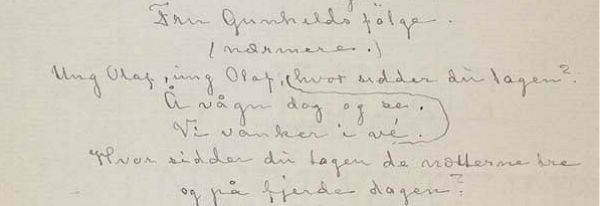 Fru Gunhilds følge.
(nærmere.)
Ung Olaf, ung Olaf, hvor sidder du tagen?
Å vågn dog og se.
Vi vanker i vé.
Hvor sidder du tagen de nætterne tre
og på fjerde dagen?